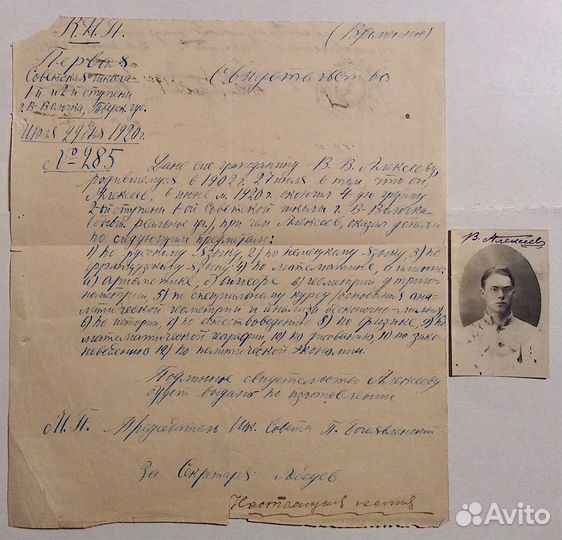 К.И.П.
(Временное)
Первая
Советская школа
1й и 2й ступени
г. В-Волочка, Тверск. губ.
Июля 29 дня 1920 г.
№ 285
Свидетельство
Дано сие гражданину В. В. Алексееву,
родившемуся в 1902 г. 27 июля в том, что он,
Алексеев, в июне м. 1920 г. окончил 4-ю группу
2-ой ступени 1-ой Советской школы г. В-Волочка
(бывш. реальное уч.), при чем Алексеев, оказал успехи
по следующим предметам:
1) по русскому языку, 2) по немецкому языку, 3) по
французскому языку 4) по математике, а именно:
а) арифметике, б) алгебре в) геометрии г) триго-
нометрии, 5) по специальному курсу (основания ана-
литической геометрии и анализа бесконечно-малых),
6) по истории, 7) по естествоведению 8) по физике, 9) по
математической географии 10) по рисованию, 11) по зако-
новедению 12) по политической экономии.
Подлинное свидетельство Алексееву
будет выдано по изготовлении
М.П. Председатель Шк. Совета П. Богоявленский
За Секретаря Лебедев
Настоящая копия
В. Алексеев
Avito